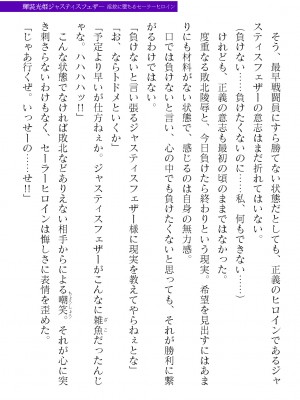 輝装光姫ジャスティスフェザー 成敗に堕ちるセーラーヒロイン
そう、最早戦闘員にすら勝てない状態だとしても、正義のヒロインであるジャ
スティスフェザーの意志はまだ折れてはいない。
(負けない……負けたくないのに……私、何もできない……)
けれども、正義の意志も最初の頃のままではなかった。
度重なる敗北陵辱と、今日負けたら終わりという現実。希望を見出すにはあま
りにも材料がない状態で、感じるのは自身の無力感。
口では負けないと言い、心の中でも負けたくないと思っても、それが勝利に繋
がるわけではない
「負けないと言い張るジャスティスフェザー様に現実を教えてやらねぇとな」
「お、ならトドメといくか」
「予定より早いが仕方ねぇか。ジャスティスフェザーがこんなに雑魚だったんじ
ゃな。ハハハハッ!!」
こんな状態でなければ敗北などありえない相手からによる嘲笑。それが心に突
き刺さらないわけもなく、セーラーヒロインは悔しさに表情を歪めた。
「じゃあ行くぞ。いっせーの……せ!!」